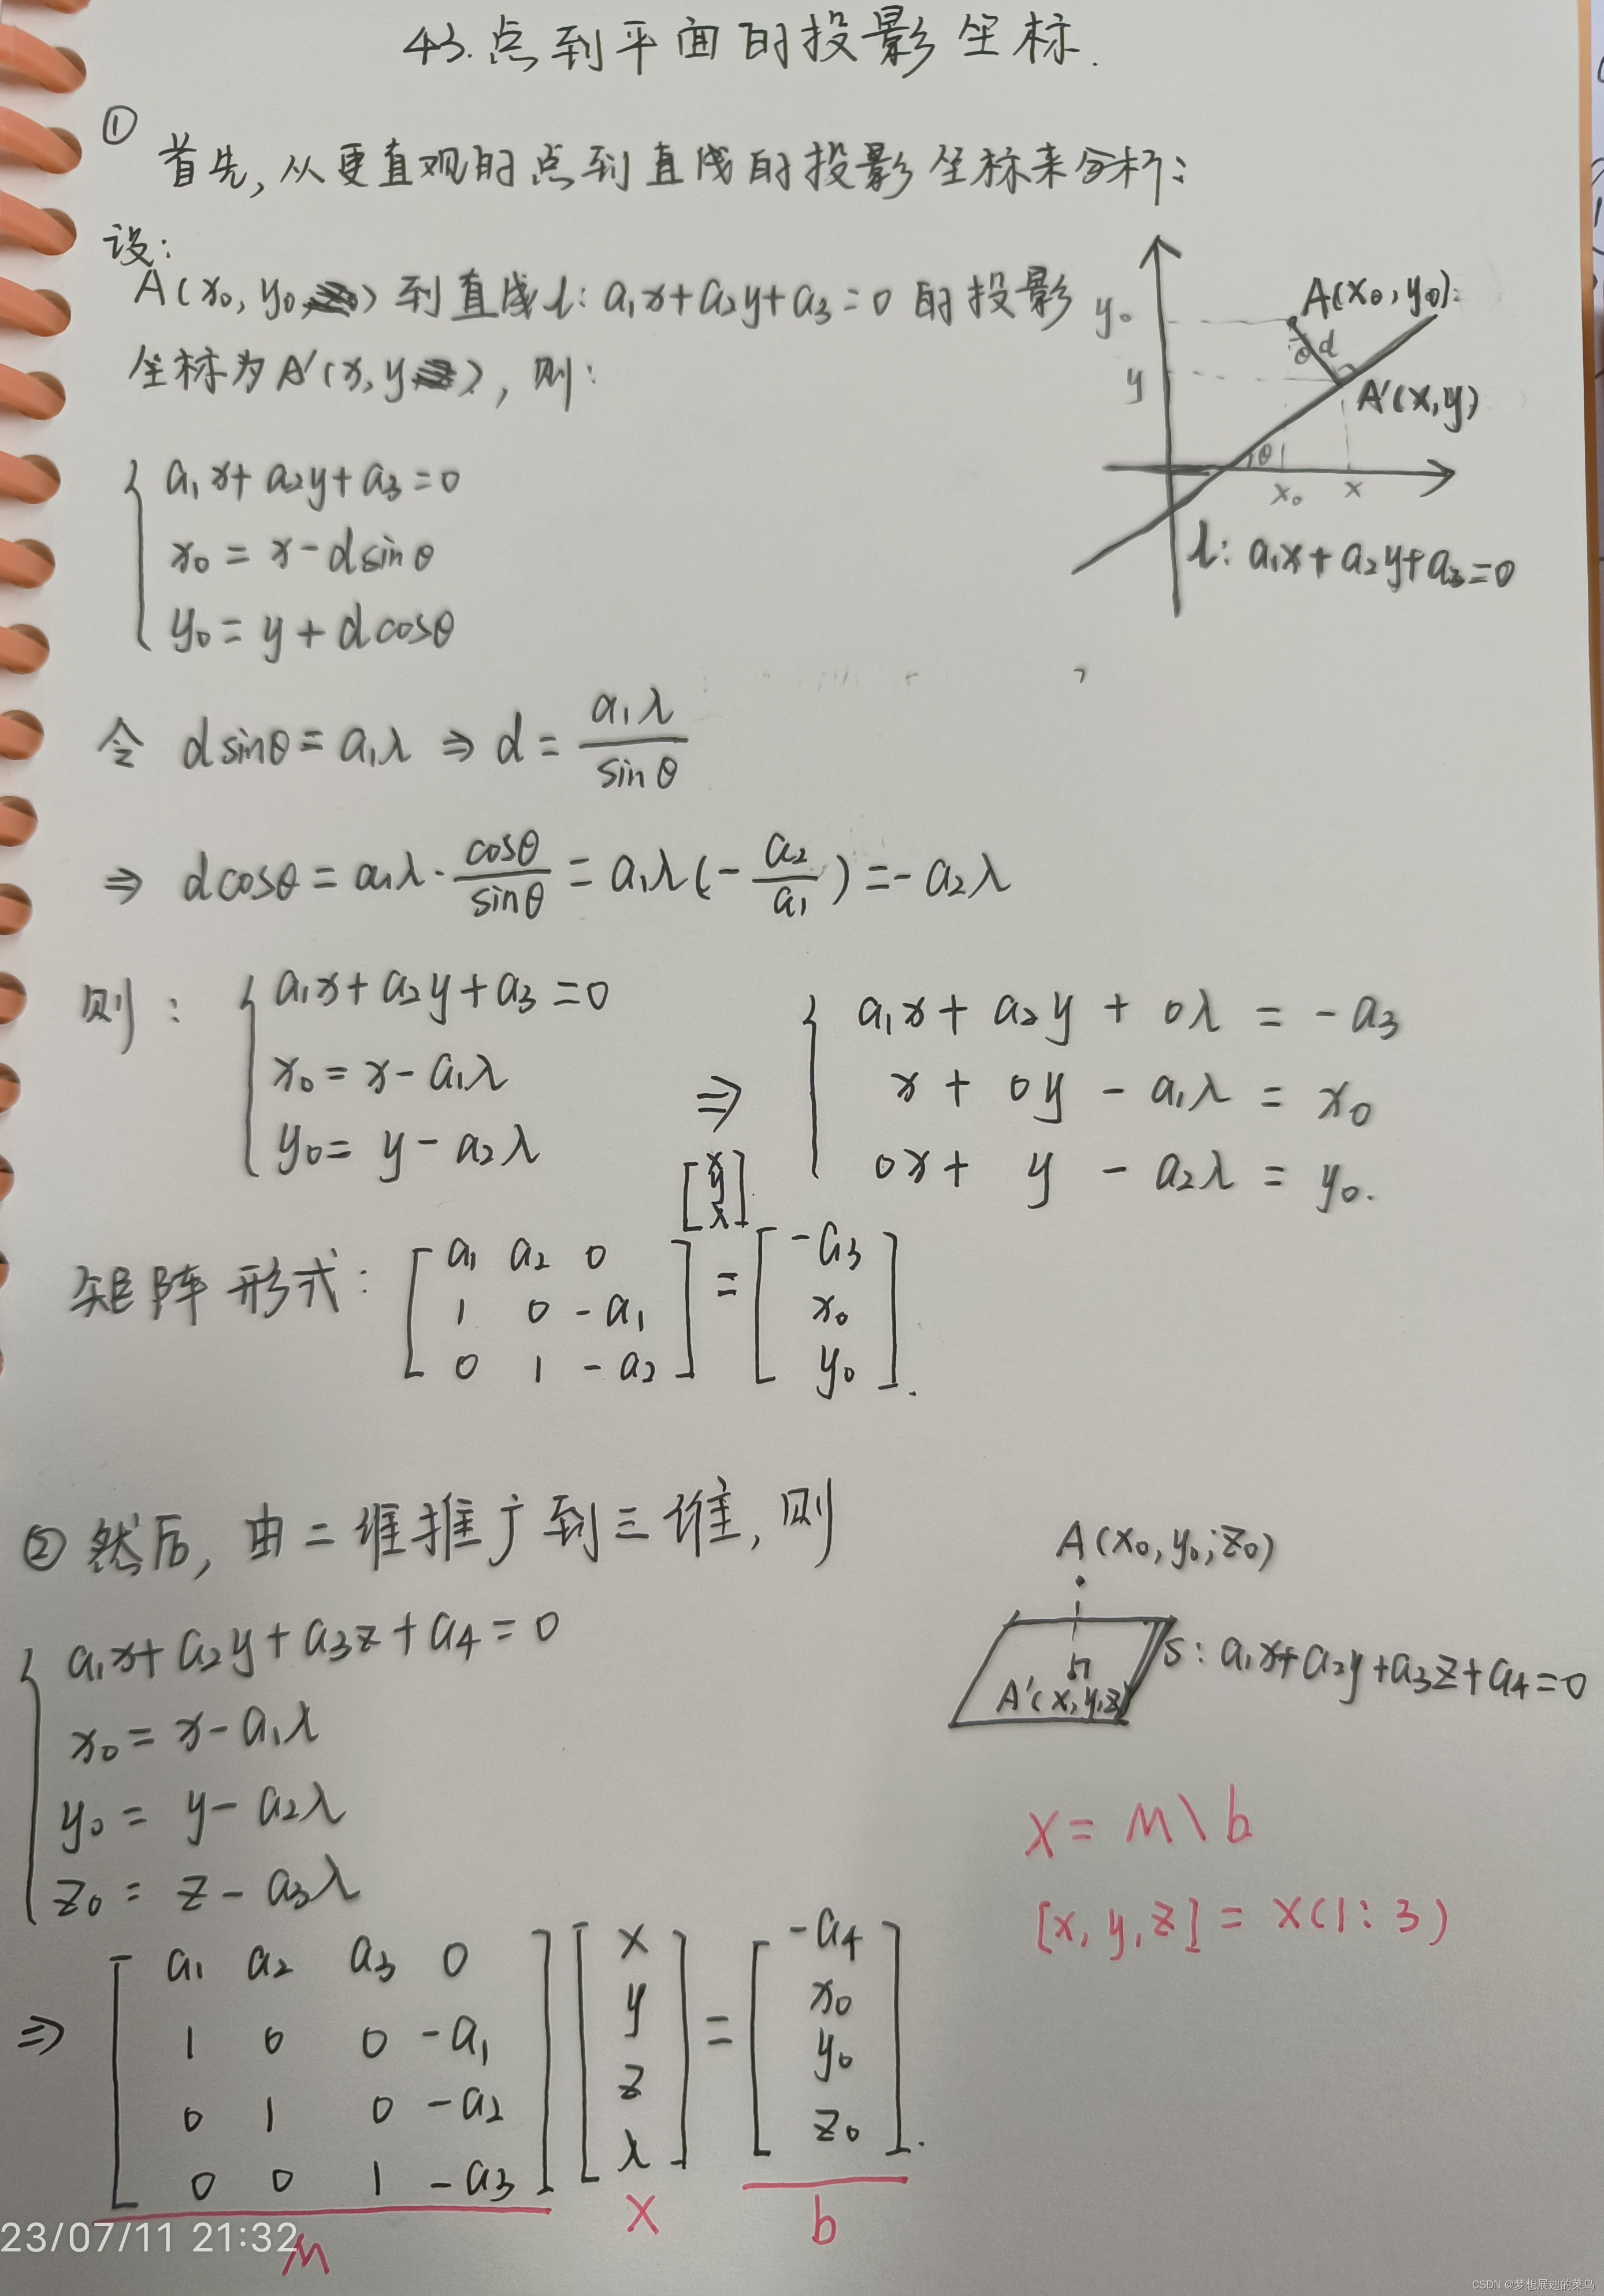 43.点到平面的投影坐标.
①
首先,从更直观的点到直线的投影坐标来分析:
设:
A(x₀, y₀) 到直线l: a₁x+a₂y+a₃=0 的投影
坐标为A'(x, y), 则:
a₁x+a₂y+a₃=0
x₀=x-dsinθ
y₀=y+dcosθ
y₀
A(x₀, y₀):
θ
d
y
A'(x,y)
θ
x₀
x
l: a₁x+a₂y+a₃=0
令 dsinθ=a₁λ ⇒ d= a₁λ/sinθ
⇒ dcosθ=a₁λ·cosθ/sinθ=a₁λ(-a₂/a₁)=-a₂λ
则: { a₁x+a₂y+a₃=0
x₀=x-a₁λ
y₀=y-a₂λ
⇒ { a₁x+a₂y+0λ=-a₃
x+0y-a₁λ=x₀
0x+y-a₂λ=y₀.
矩阵形式: [a₁ a₂ 0; 1 0 -a₁; 0 1 -a₂] [x; y; λ] = [-a₃; x₀; y₀].
② 然后, 由二维推广到三维, 则
a₁x+a₂y+a₃z+a₄=0
x₀=x-a₁λ
y₀=y-a₂λ
z₀=z-a₃λ
A(x₀, y₀, z₀)
A'(x,y,z)
S: a₁x+a₂y+a₃z+a₄=0
X=M\b
[x,y,z]=X(1:3)
⇒ [a₁ a₂ a₃ 0; 1 0 0 -a₁; 0 1 0 -a₂; 0 0 1 -a₃] [x; y; z; λ] = [-a₄; x₀; y₀; z₀].
M
X
b
23/07/11 21:32
CSDN @梦想展翅的菜鸟